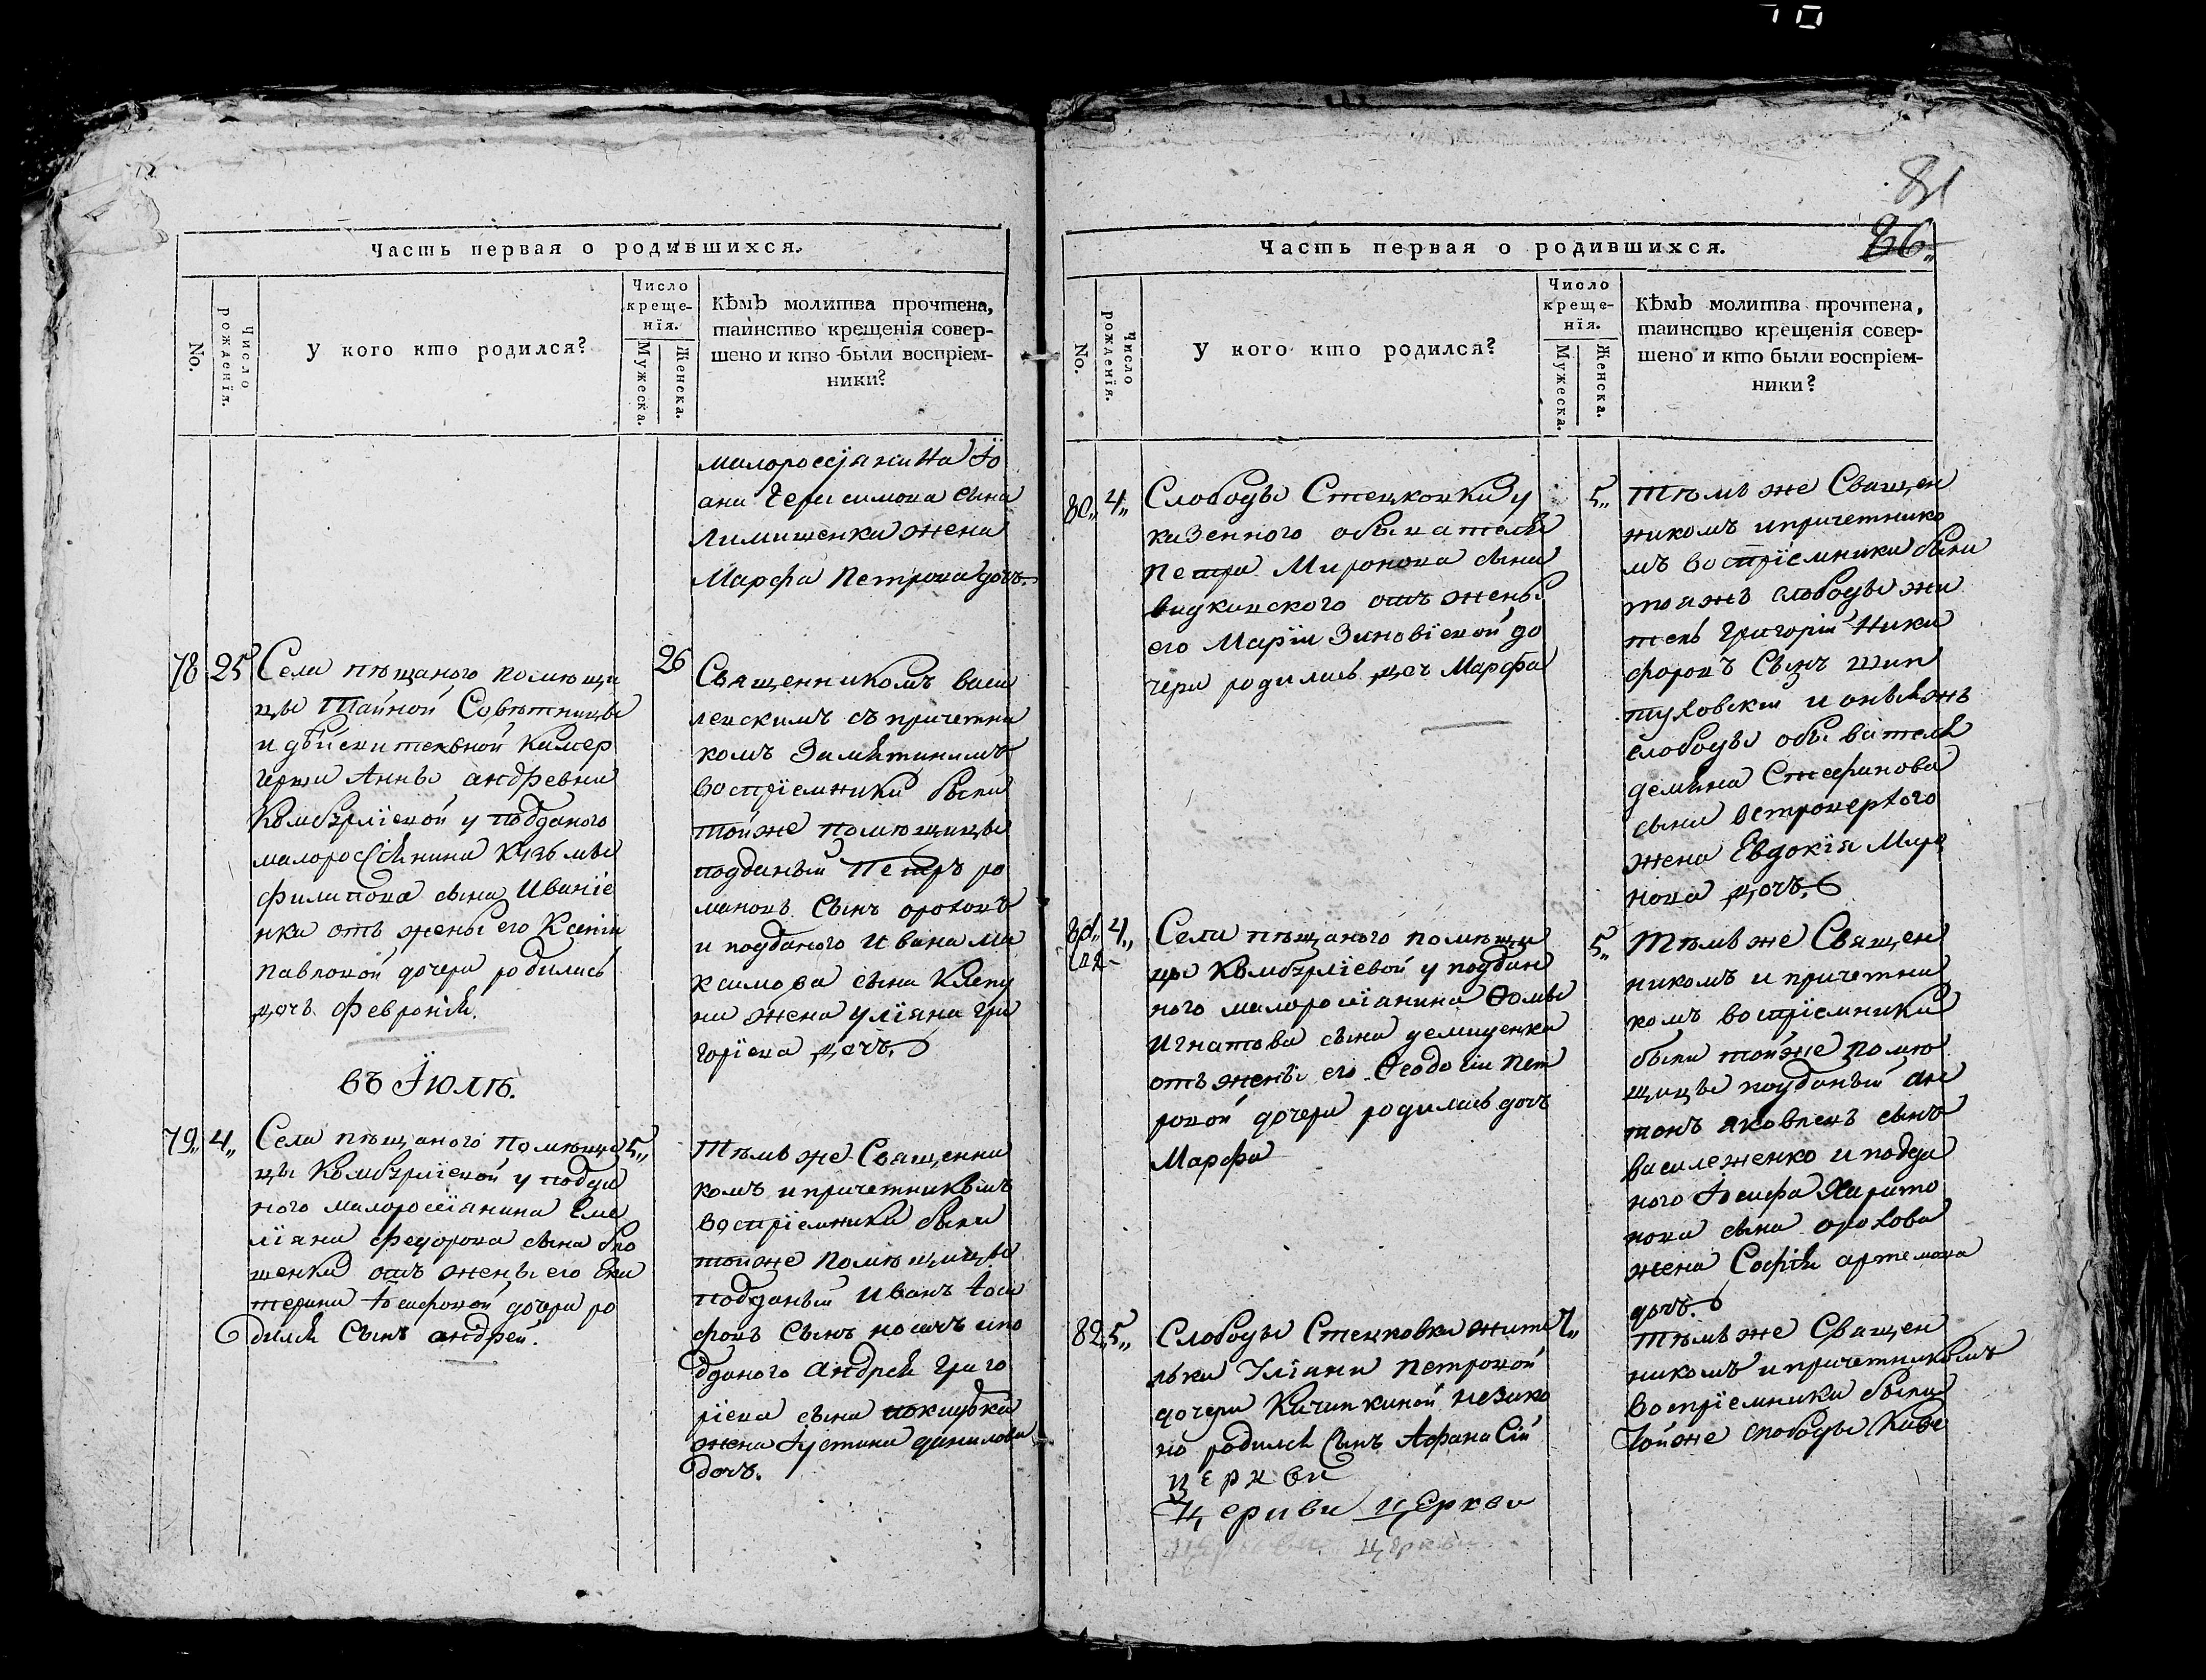 81
36
Часть первая о родившихся.
No.
Число рожденія.
У кого кто родился?
Число креще-
нія.
Мужеска.
Женска.
Кѣмъ молитва прочтена,
таинство крещенія совер-
шено и кто были воспріем-
ники?
малороссіянина Іо
ана Герасимова сына
жена
Марфа Петрова дочъ.
78 25
Села пѣщаного помѣщи
цы Тайной Совѣтницы
и дѣйсвителвной Камер
герши Анны андревны
Комбурлїевой у подданого
малороссіянина Кузмы
филипова сына Иваніе
нка отъ жены его Ксеніи
павловой дочери родилась
дочъ Февронія.
26
Священникомъ васи
левскимъ съ причетни
комъ Замятинимъ
воспріемники были
тойже помѣщицы
подданый Петръ ро
мановъ сынъ ороховъ
и подданого Ивана Ма
ксимова сына Клепу
ни жена Уліяна Гри
горїева дочъ.
въ Іюлѣ.
79 4
Села пѣщаного помѣщи
цы Комбурліевой у подда
ного малороссіянина Еме
ліяна федорова сына
шенка отъ жены его Ека
терины Іосифовой дочери ро
дился сынъ андрей.
5
Тѣмъ же Священни
комъ и причетникомъ
воспріемники были
тойже помѣщицы
подданый Иванъ Іоси
фовъ сынъ носачъ ипо
дданого андрея григо
ріева сына
жена Іустина данилова
дочъ.
Часть первая о родившихся.
No.
Число рожденія.
У кого кто родился?
Число креще-
нія.
Мужеска.
Женска.
Кѣмъ молитва прочтена,
таинство крещенія совер-
шено и кто были воспріем-
ники?
80 4
Слободы Стецковки у
казенного обывателя
Петра Миронова сына
отъ жены
его Маріи Зиновіевой до
чери родилась дочь Марфа
5
Тѣмъ же Священ
никомъ ипричетнико
мъ воспріемники были
тояжъ слободы жи
тель Григорій Ники
форовъ Сынъ шап
туховскій и онъяжъ
слободы обывателя
демяна Стефанова
сына
жена Евдокія Миро
нова дочъ.
81 4
Села пѣщаного помѣщи
цы Комбурліевой у поддан
ного малороссіянина Ѳомы
Игнатова сына демиденка
отъ жены его Ѳеодосіи Пет
ровой дочери родилась дочъ
Марфа
5
Тѣмъ же Священ
никомъ и причетни
комъ воспріемники
были тойже помѣ
щицы подданый ан
тонъ яковлевъ сынъ
василеженко и подда
ного Іосифа Харито
нова сына орохова
жена Софія артемова
дочъ.
82 5
Слободы Стецковки жите
льки Уліяни Петровой
дочери незако
но родился сынъ Афанасій
7
Тѣмъ же Священ
никомъ и причетникомъ
воспріемники были
тойже слободы
церкви
Церкви церкви
церкви